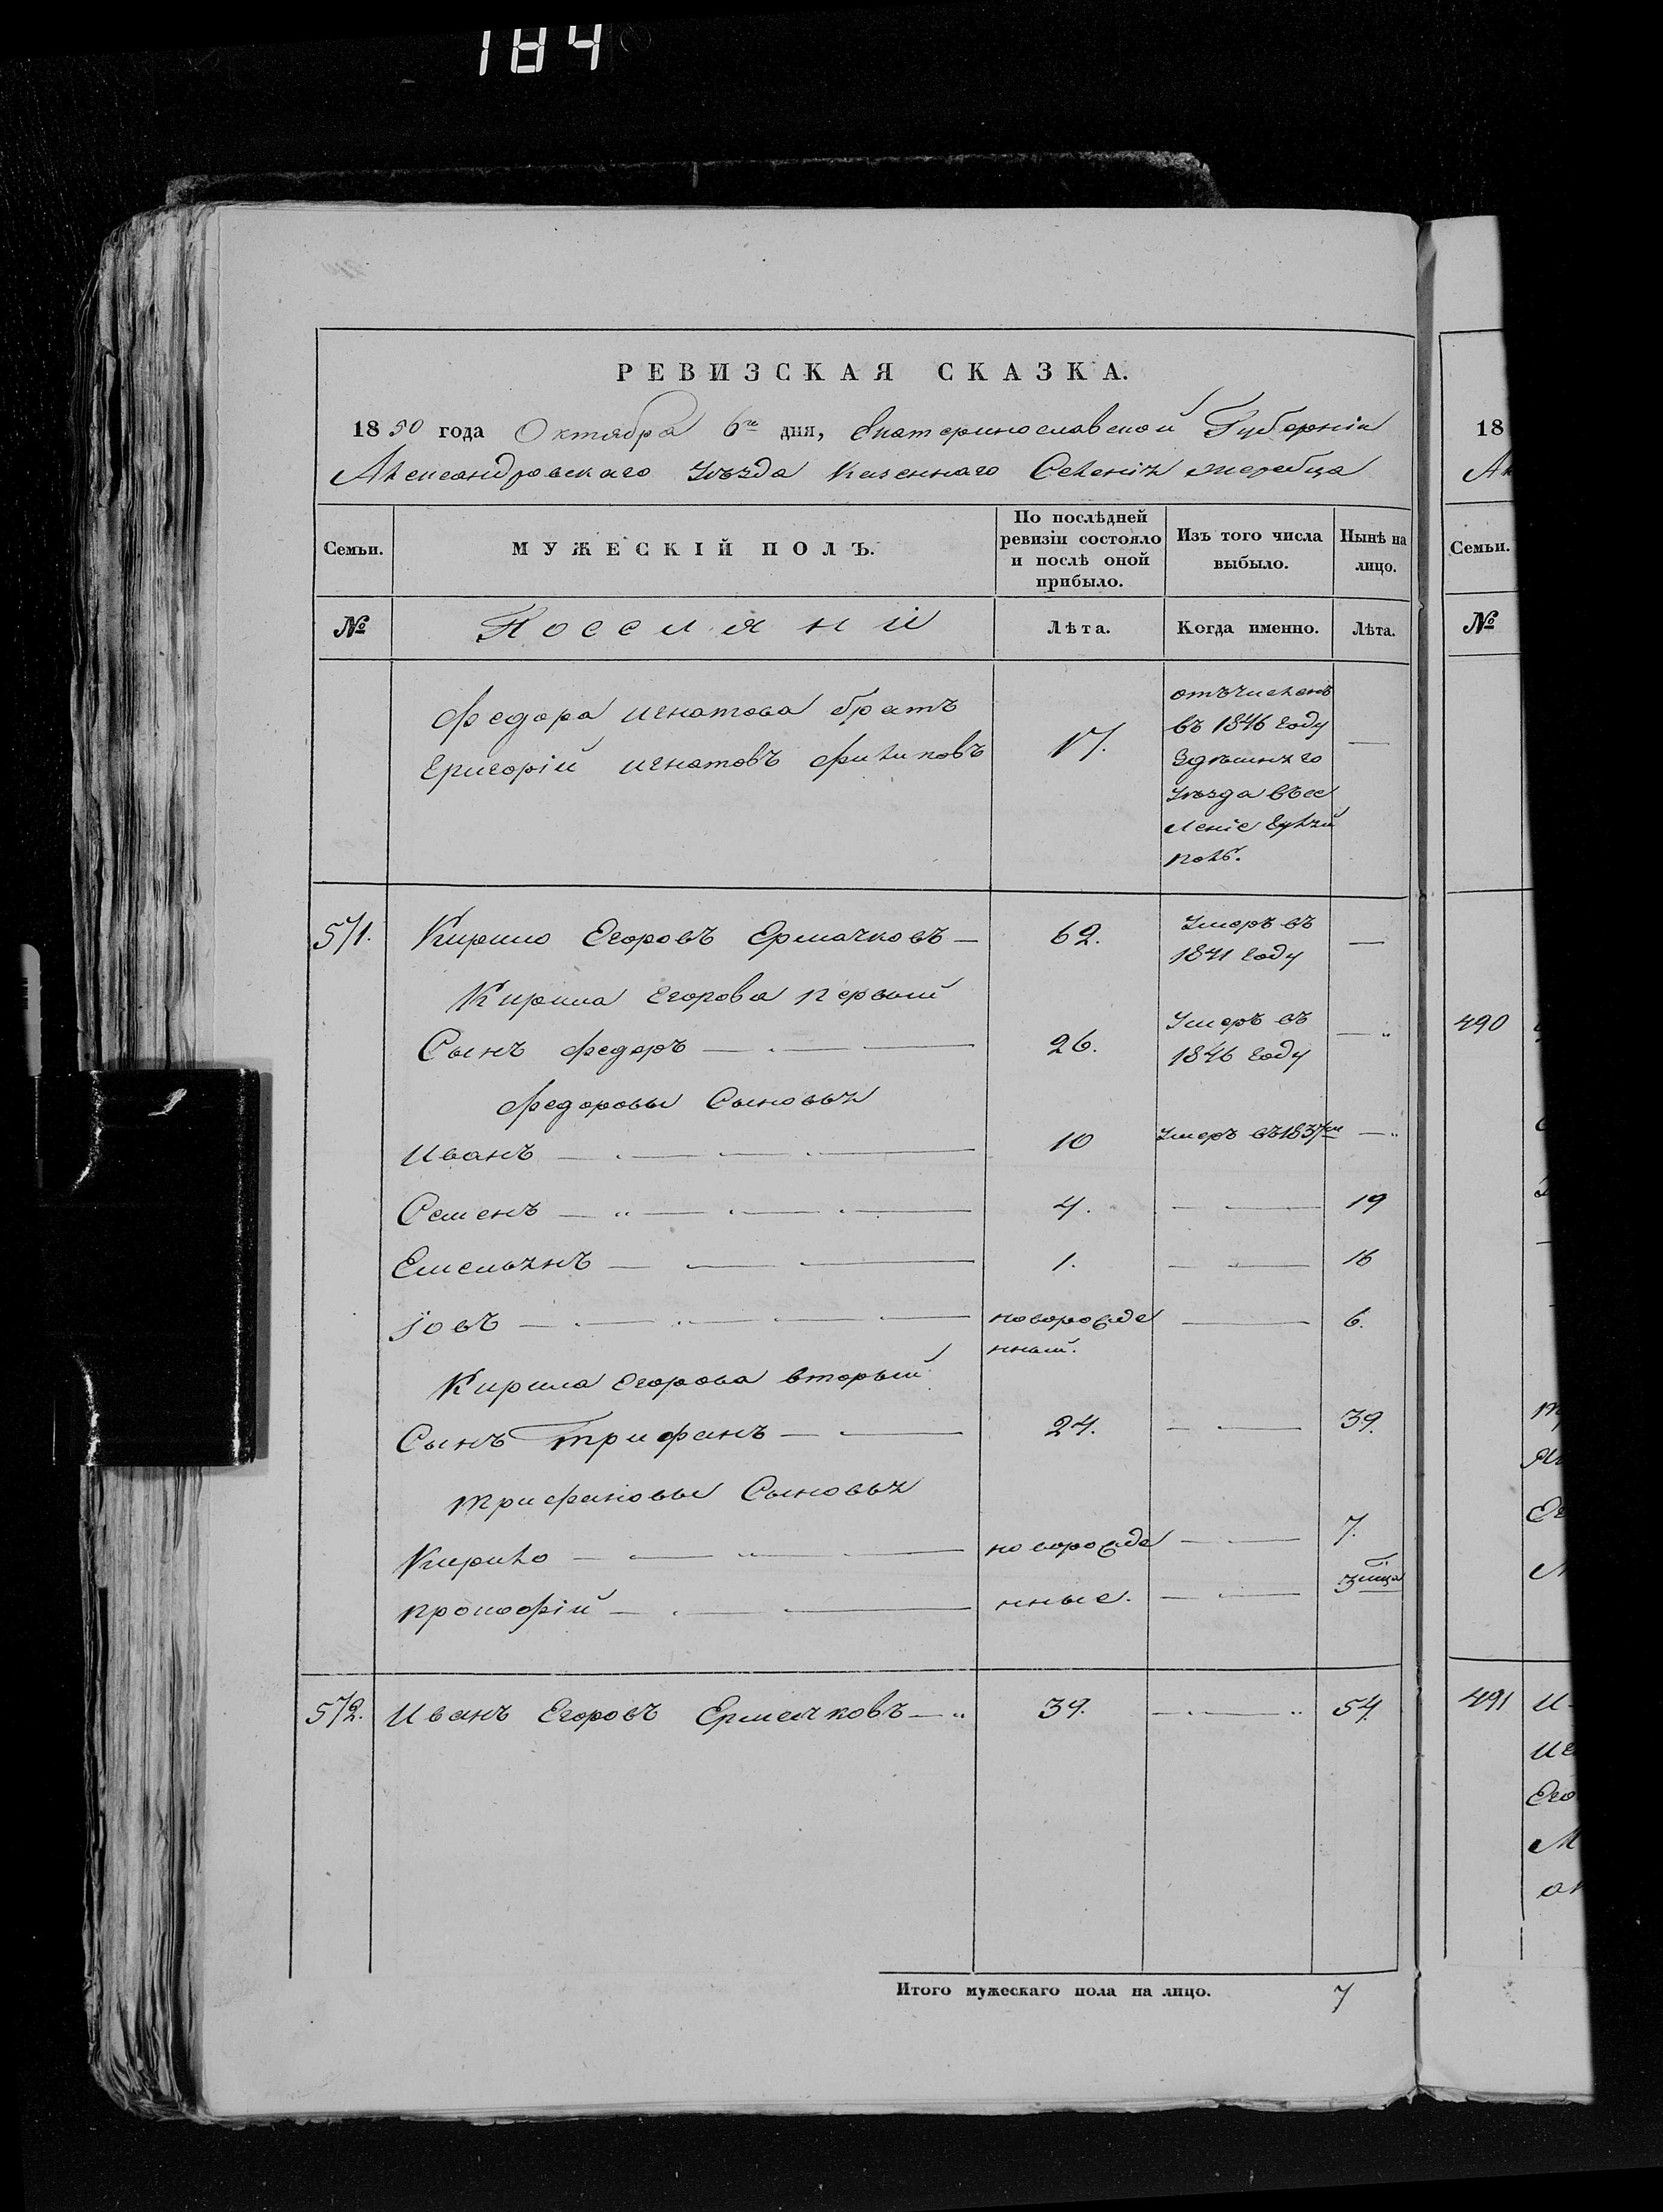 184
РЕВИЗСКАЯ СКАЗКА.
1850 года Октября 6го дня, Екатеринославской Губерніи
Александровскаго Уѣзда Казеннаго Селенія Жеребца
Семьи.
МУЖЕСКІЙ ПОЛЪ.
По послѣдней ревизіи состояло и послѣ оной прибыло.
Изъ того числа выбыло.
Нынѣ на лицо.
№
Поселяни
Лѣта.
Когда именно.
Лѣта.
Федора Игнатова братъ
Григорій Игнатовъ Филиповъ 17. —
отъчисленъ
въ 1846 году
Здѣшняго
Уѣзда въсе
леніе Гуляй
поль.
571. Кирило Егоровъ Ермачковъ — 62. Умеръ въ 1841 году —
Кирила Егорова первый
Сынъ Федоръ — 26. Умеръ въ 1846 году —
Федоровы Сыновья
Иванъ — 10 Умеръ въ 1837м —
Семенъ — 4. — 19
Емельянъ — 1. — 16
Іовъ — новорожде нный. — 6.
Кирила Егорова вторый
Сынъ Трифанъ — 24. — 39.
Трифановы Сыновья
Кирило — новорожде — 7.
Прокофій — нные. — 3 мца
572. Иванъ Егоровъ Ермачковъ — 39. — 54.
Итого мужескаго пола на лицо. 7
18
Семьи.
№
490
491